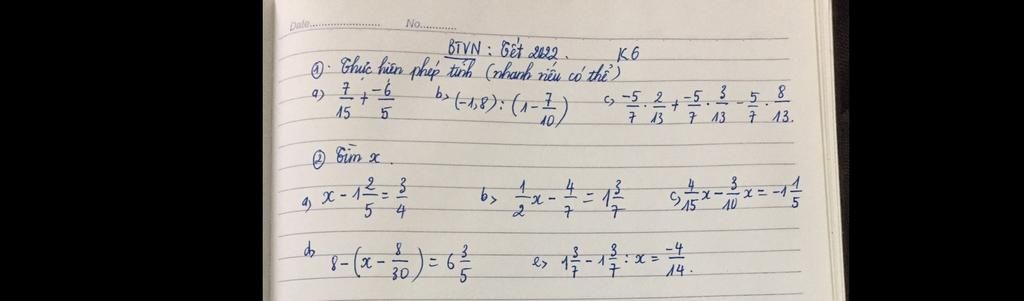 Date.................... No............
BTVN : Tết 2022. K6
① . Thực hiện phép tính (nhanh nếu có thể)
a) 7/15 + -6/5 b> (-1,8) : (1 - 7/10) c, -5/7 . 2/13 + -5/7 . 3/13 - 5/7 . 8/13.
② Tìm x .
a) x - 1 2/5 = 3/4 b> 1/2 x - 4/7 = 1 3/7 c) 4/15 x - 3/10 x = -1 1/5
d> 8 - (x - 8/30) = 6 3/5 e> 1 3/7 - 1 3/7 : x = -4/14.